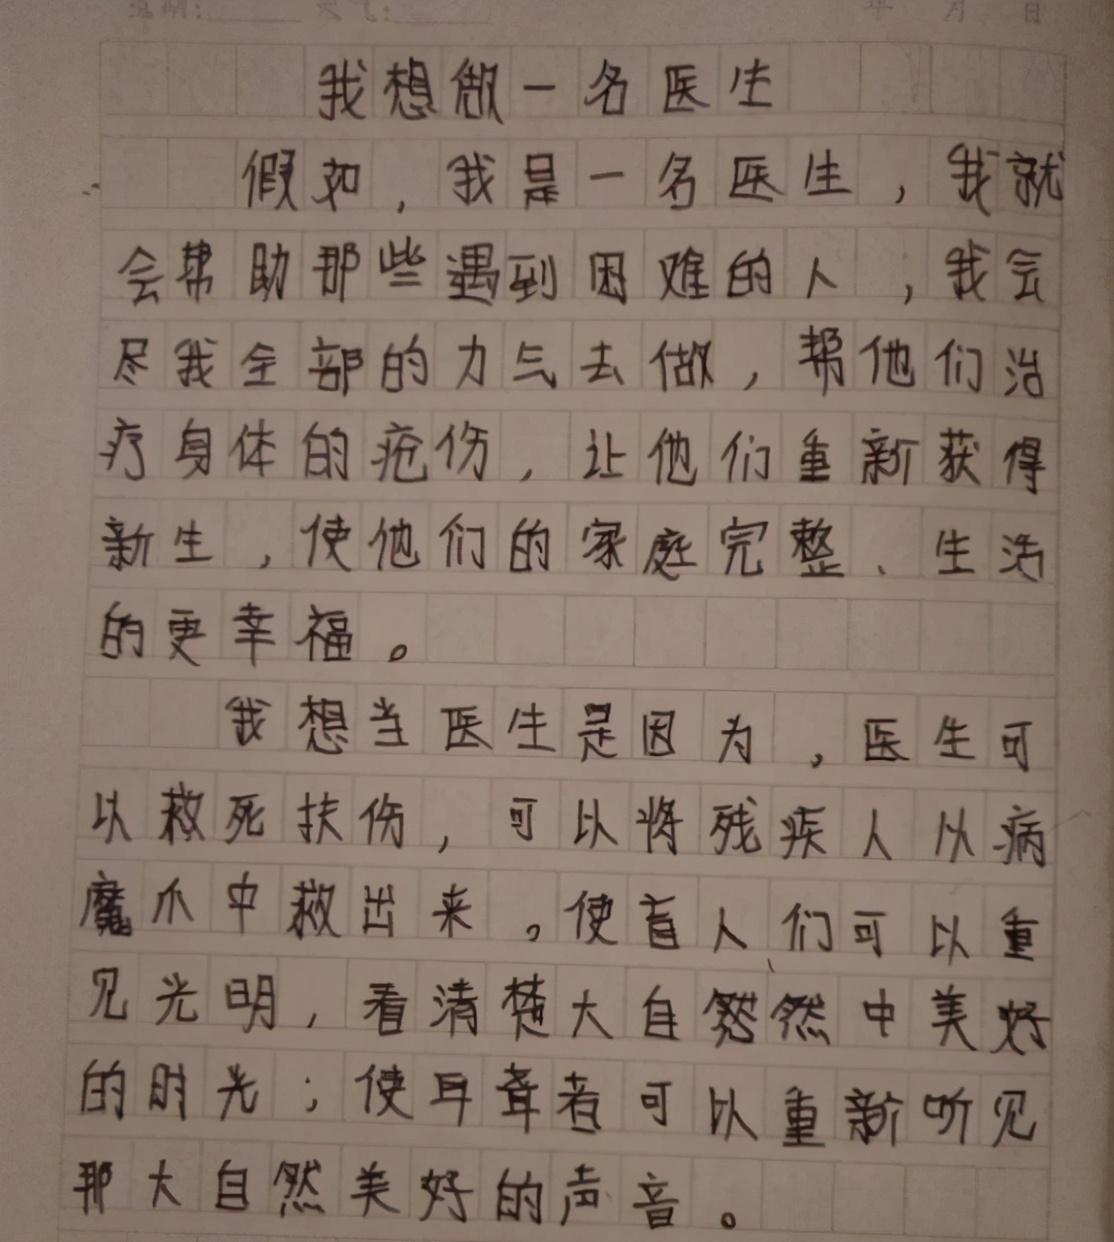 我想做一名医生
假如，我是一名医生，我就
会帮助那些遇到困难的人，我会
尽我全部的力气去做，帮他们治
疗身体的疮伤，让他们重新获得
新生，使他们的家庭完整、生活
的更幸福。
我想当医生是因为，医生可
以救死扶伤，可以将残疾人从病
魔爪中救出来。使盲人们可以重
见光明，看清楚大自然然中美好
的时光；使耳聋者可以重新听见
那大自然美好的声音。